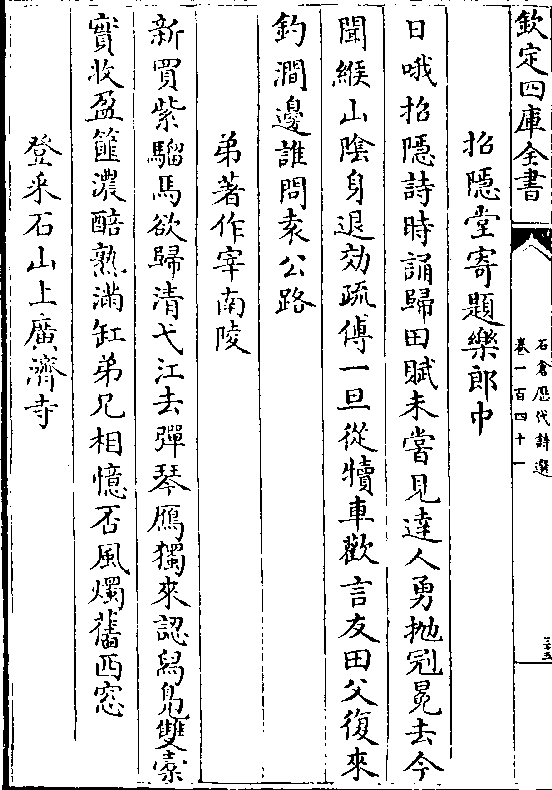 欽定四庫全書
石倉歷代詩選
卷一百四十一
三十五
招隱堂寄題樂郎中
日哦招隱詩時誦歸田賦未嘗見達人勇抛冠冕去今
聞緱山陰身退効疏傅一旦從犢車歡言友田父復來
釣澗邊誰問袁公路
弟著作宰南陵
新買紫騮馬欲歸清弋江去彈琴鴈獨來認舄鳧雙橐
實收盈篚濃醅熟滿缸弟兄相憶否風燭舊西窓
登采石山上廣濟寺